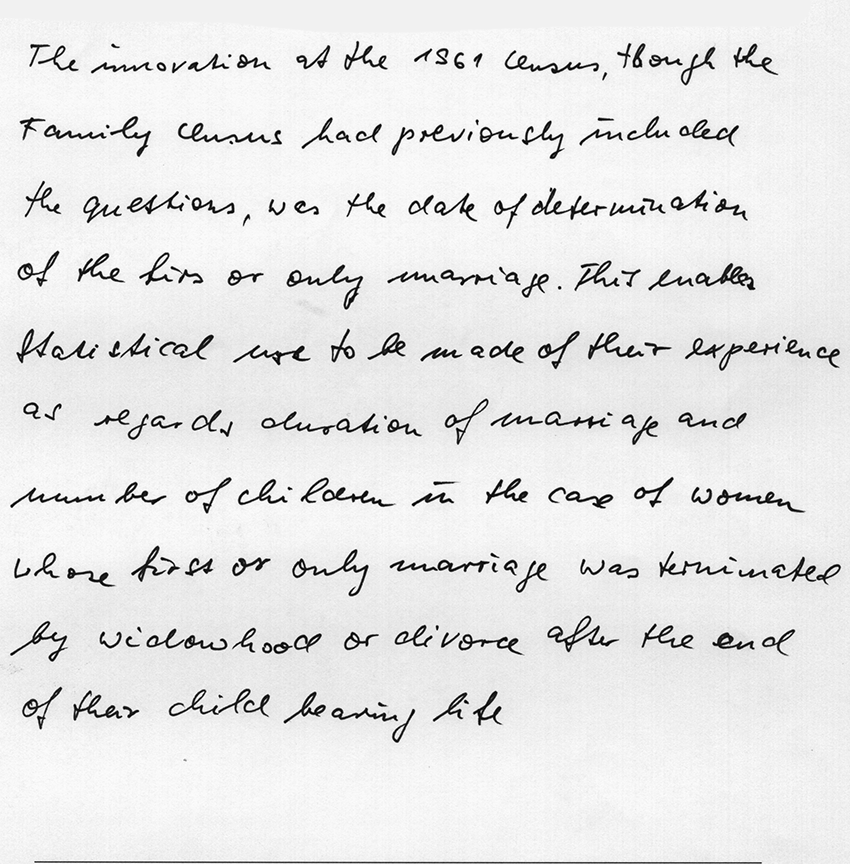 The innovation at the 1961 census, though the
Family census had previously included
the questions, was the date of determination
of the firs or only marriage. This enables
statistical use to be made of their experience
as regards duration of marriage and
number of children in the case of women
whose first or only marriage was terminated
by widowhood or divorce after the end
of their child bearing life